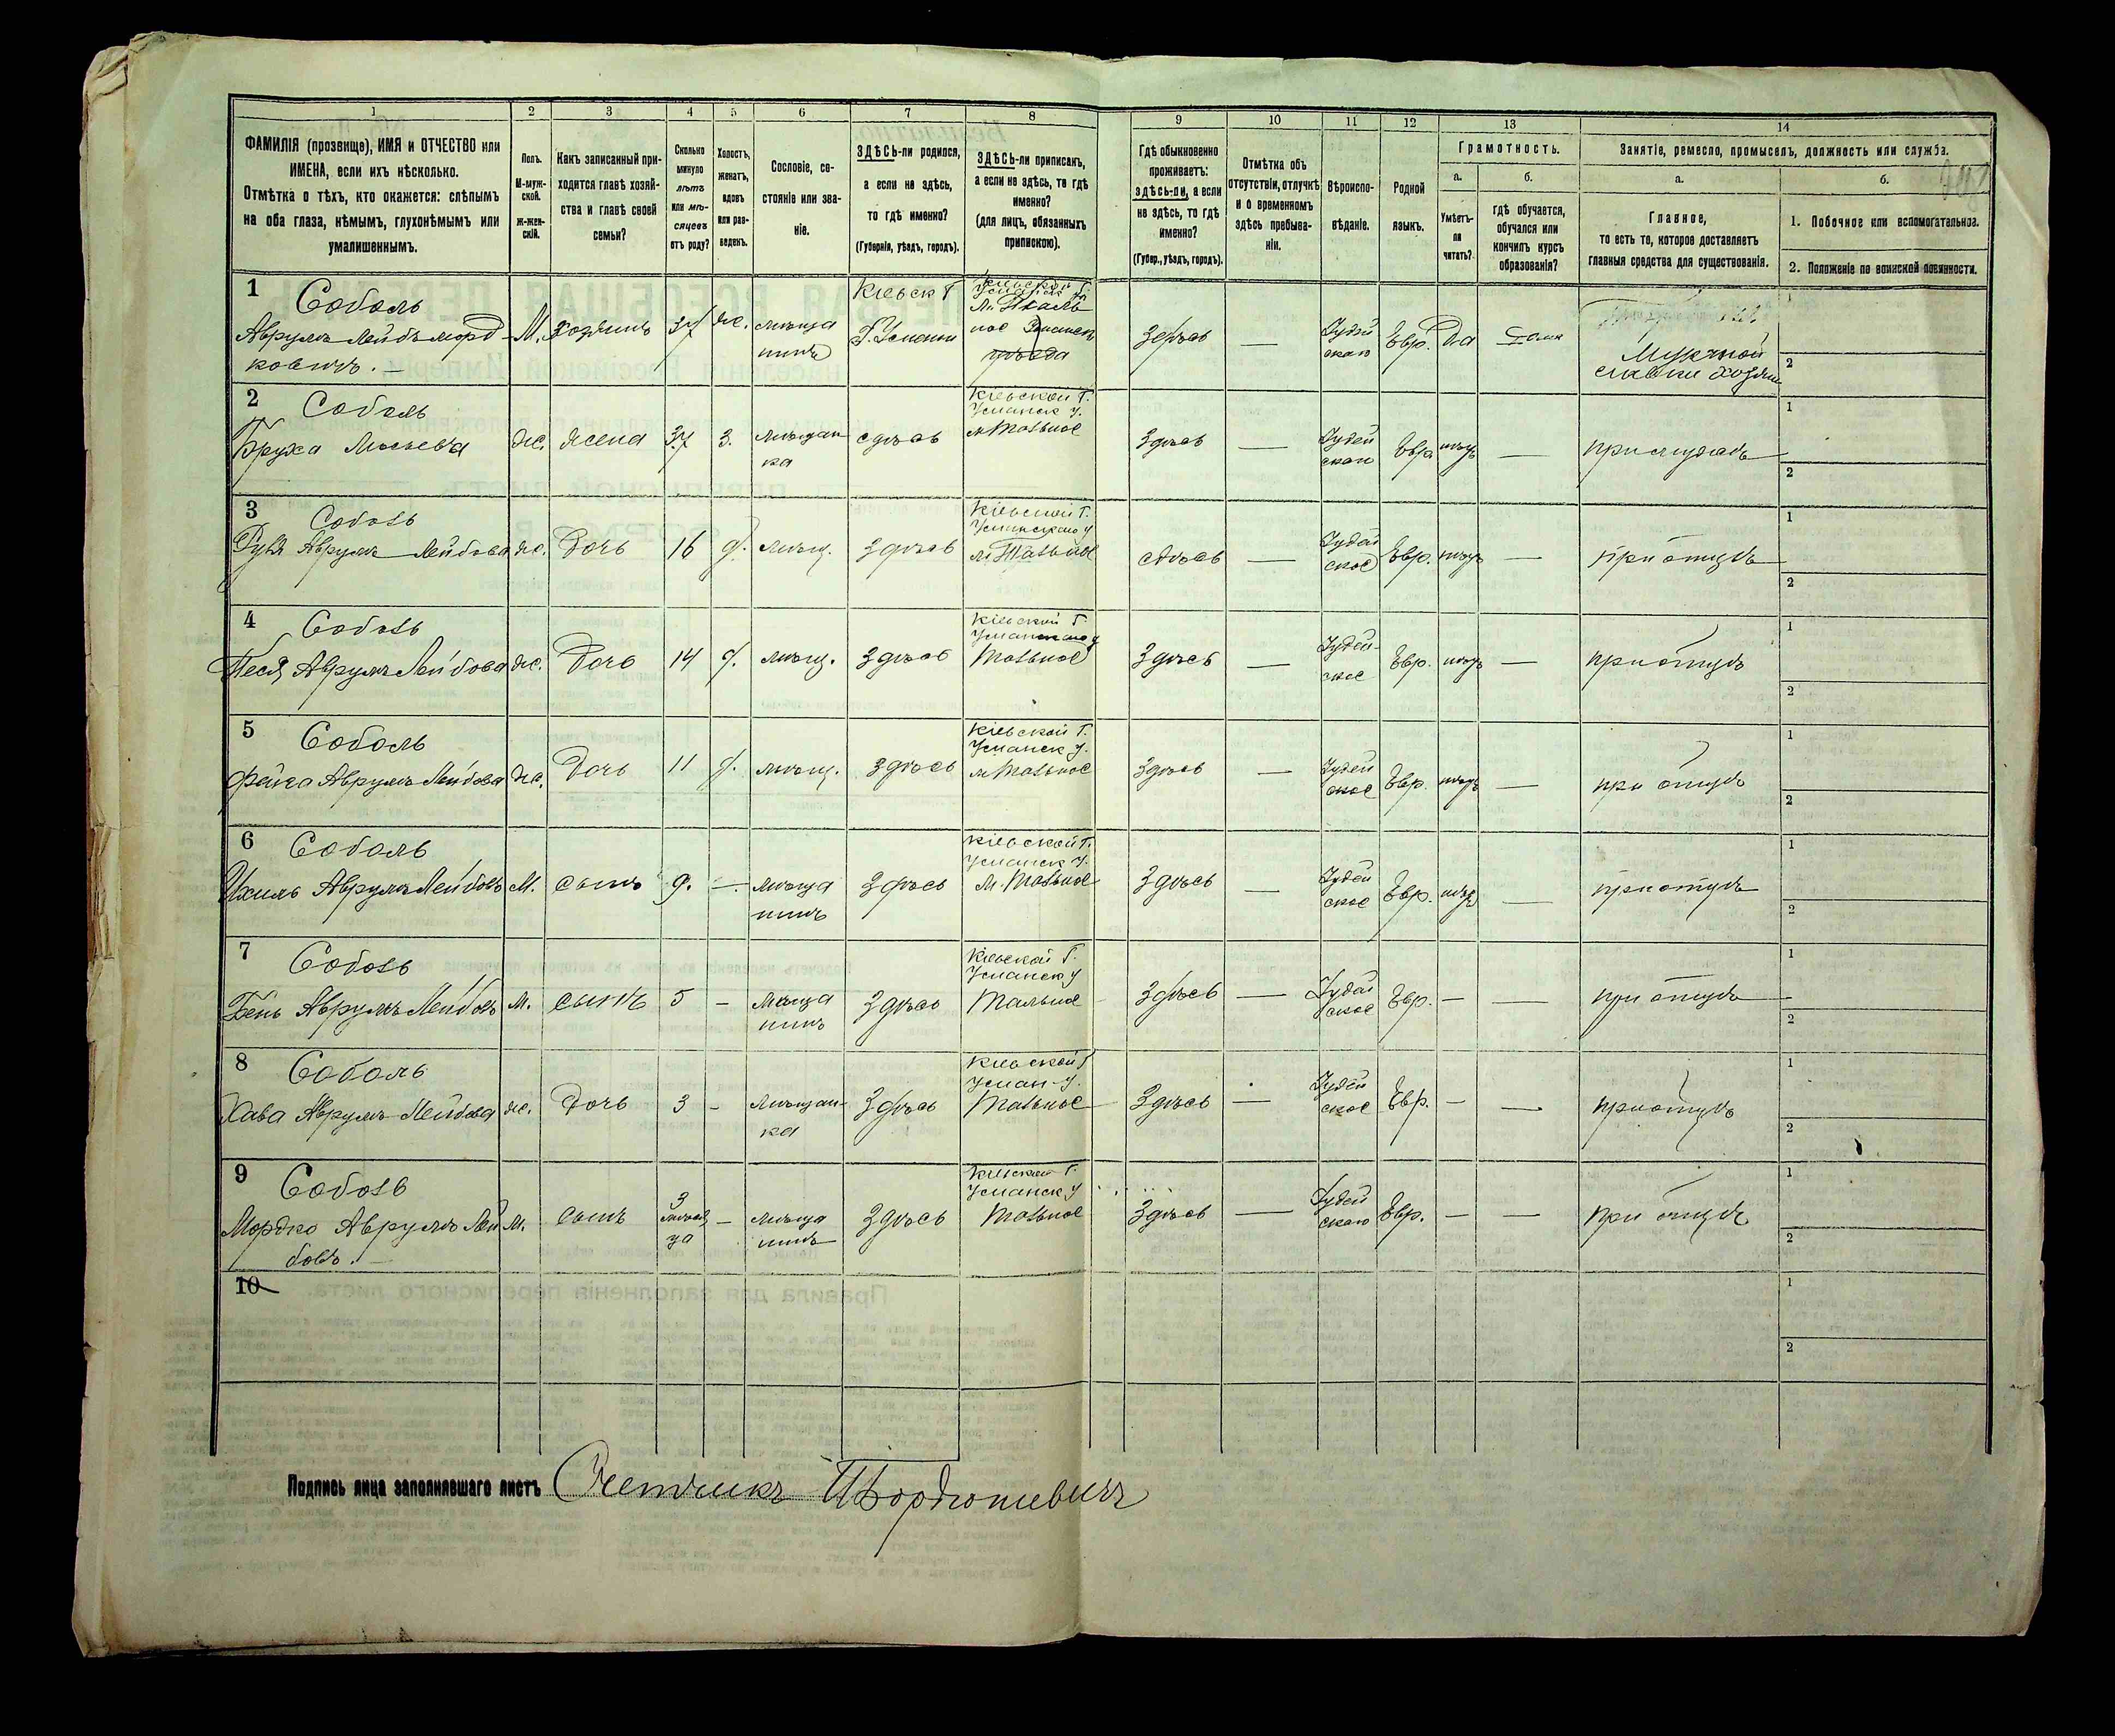 1 2 3 4 5 6 7 8 9 10 11 12 13 14
ФАМИЛІЯ (прозвище), ИМЯ и ОТЧЕСТВО или
ИМЕНА, если ихъ нѣсколько.
Отмѣтка о тѣхъ, кто окажется: слѣпымъ
на оба глаза, нѣмымъ, глухонѣмымъ или
умалишеннымъ.
Полъ.
М-муж-
ской.
ж-жен-
скій.
Какъ записанный при-
ходится главѣ хозяй-
ства и главѣ своей
семьи?
Сколько
минуло
лѣтъ
или мѣ-
сяцевъ
отъ роду?
Холостъ,
женатъ,
вдовъ
или раз-
веденъ.
Сословіе, со-
стояніе или зва-
ніе.
ЗДѢСЬ-ли родился,
а если не здѣсь,
то гдѣ именно?
(Губернія, уѣздъ, городъ).
ЗДѢСЬ-ли приписанъ,
а если не здѣсь, то гдѣ
именно?
(для лицъ, обязанныхъ
припискою).
Гдѣ обыкновенно
проживаетъ:
здѣсь-ли, а если
не здѣсь, то гдѣ
именно?
(Губер., уѣздъ, городъ).
Отмѣтка объ
отсутствіи, отлучкѣ
и о временномъ
здѣсь пребыва-
ніи.
Вѣроиспо-
вѣданіе.
Родной
языкъ.
Грамотность.
а.
Умѣетъ-
ли
читать?
б.
гдѣ обучается,
обучался или
кончилъ курсъ
образованія?
Занятіе, ремесло, промыселъ, должность или служба.
а.
Главное,
то есть то, которое доставляетъ
главныя средства для существованія.
б.
1. Побочное или вспомогательное.
2. Положеніе по воинской повинности.
1 Соболь
Аврумъ Лейбъ Морд
ковичъ. —
М. Хозяинъ 37 ж. мѣща
нинъ
Кіевск Г
Г. Умани
Кіевской Г.
м. Таль
ное Уманск
уѣзда
Здѣсь — Іудей
ское Евр. Да Дома
Мучной
лавки хозяин
1
2
2 Соболь
Бруха Мосьева ж. жена 37 з. мѣщан
ка
сдѣсь
Кіевской Г.
Уманск у.
м Тальное
Здѣсь — Іудей
ское Евр нѣтъ —
при мужѣ
1
2
3 Соболь
Аврумъ Лейбова ж. Дочь 16 д. мѣщ. Здѣсь
Кіевской Г.
Уманскаго у
м. Тальное
сдѣсь — Іудей
ское Евр. нѣтъ — при отцѣ
1
2
4 Соболь
Песя Аврумъ Лейбова ж. Дочь 14 д. мѣщ. Здѣсь
Кіевской Г
Уманскаго у
Тальное
Здѣсь — Іудей-
ское Евр. нѣтъ — при отцѣ
1
2
5 Соболь
Фейга Аврумъ Лейбова ж. Дочь 11 д. мѣщ. Здѣсь
Кіевской Г.
Уманск у.
м Тальное
Здѣсь — Іудей
ское Евр. нѣтъ — при отцѣ
1
2
6 Соболь
Ихиль Аврумъ Лейбовъ М. сынъ 9. — мѣща
нинъ
Здѣсь
Кіевской Г.
Уманск у.
м. Тальное
Здѣсь — Іудей
ское Евр. нѣтъ — при отцѣ
1
2
7 Соболь
Бень Аврумъ Лейбовъ М. сынъ 5 — мѣща
нинъ
Здѣсь
Кіевской Г.
Уманск у
Тальное
Здѣсь — Іудей
ское Евр. — — при отцѣ
1
2
8 Соболь
Хава Аврумъ Лейбова ж. Дочь 3 — мѣщан-
ка
Здѣсь
Кіевской Г
Уман у.
Тальное
Здѣсь — Іудей
ское Евр. — — при отцѣ
1
2
9 Соболь
Мордко Аврумъ Лей
бовъ. —
М. сынъ 3
мѣся
ца — мѣща
нинъ
Здѣсь
Кіевской Г.
Уманск у
Тальное
Здѣсь — Іудей
ское Евр. — — при отцѣ
1
2
10
1
2
Подпись лица заполнявшаго листъ Счетчикъ